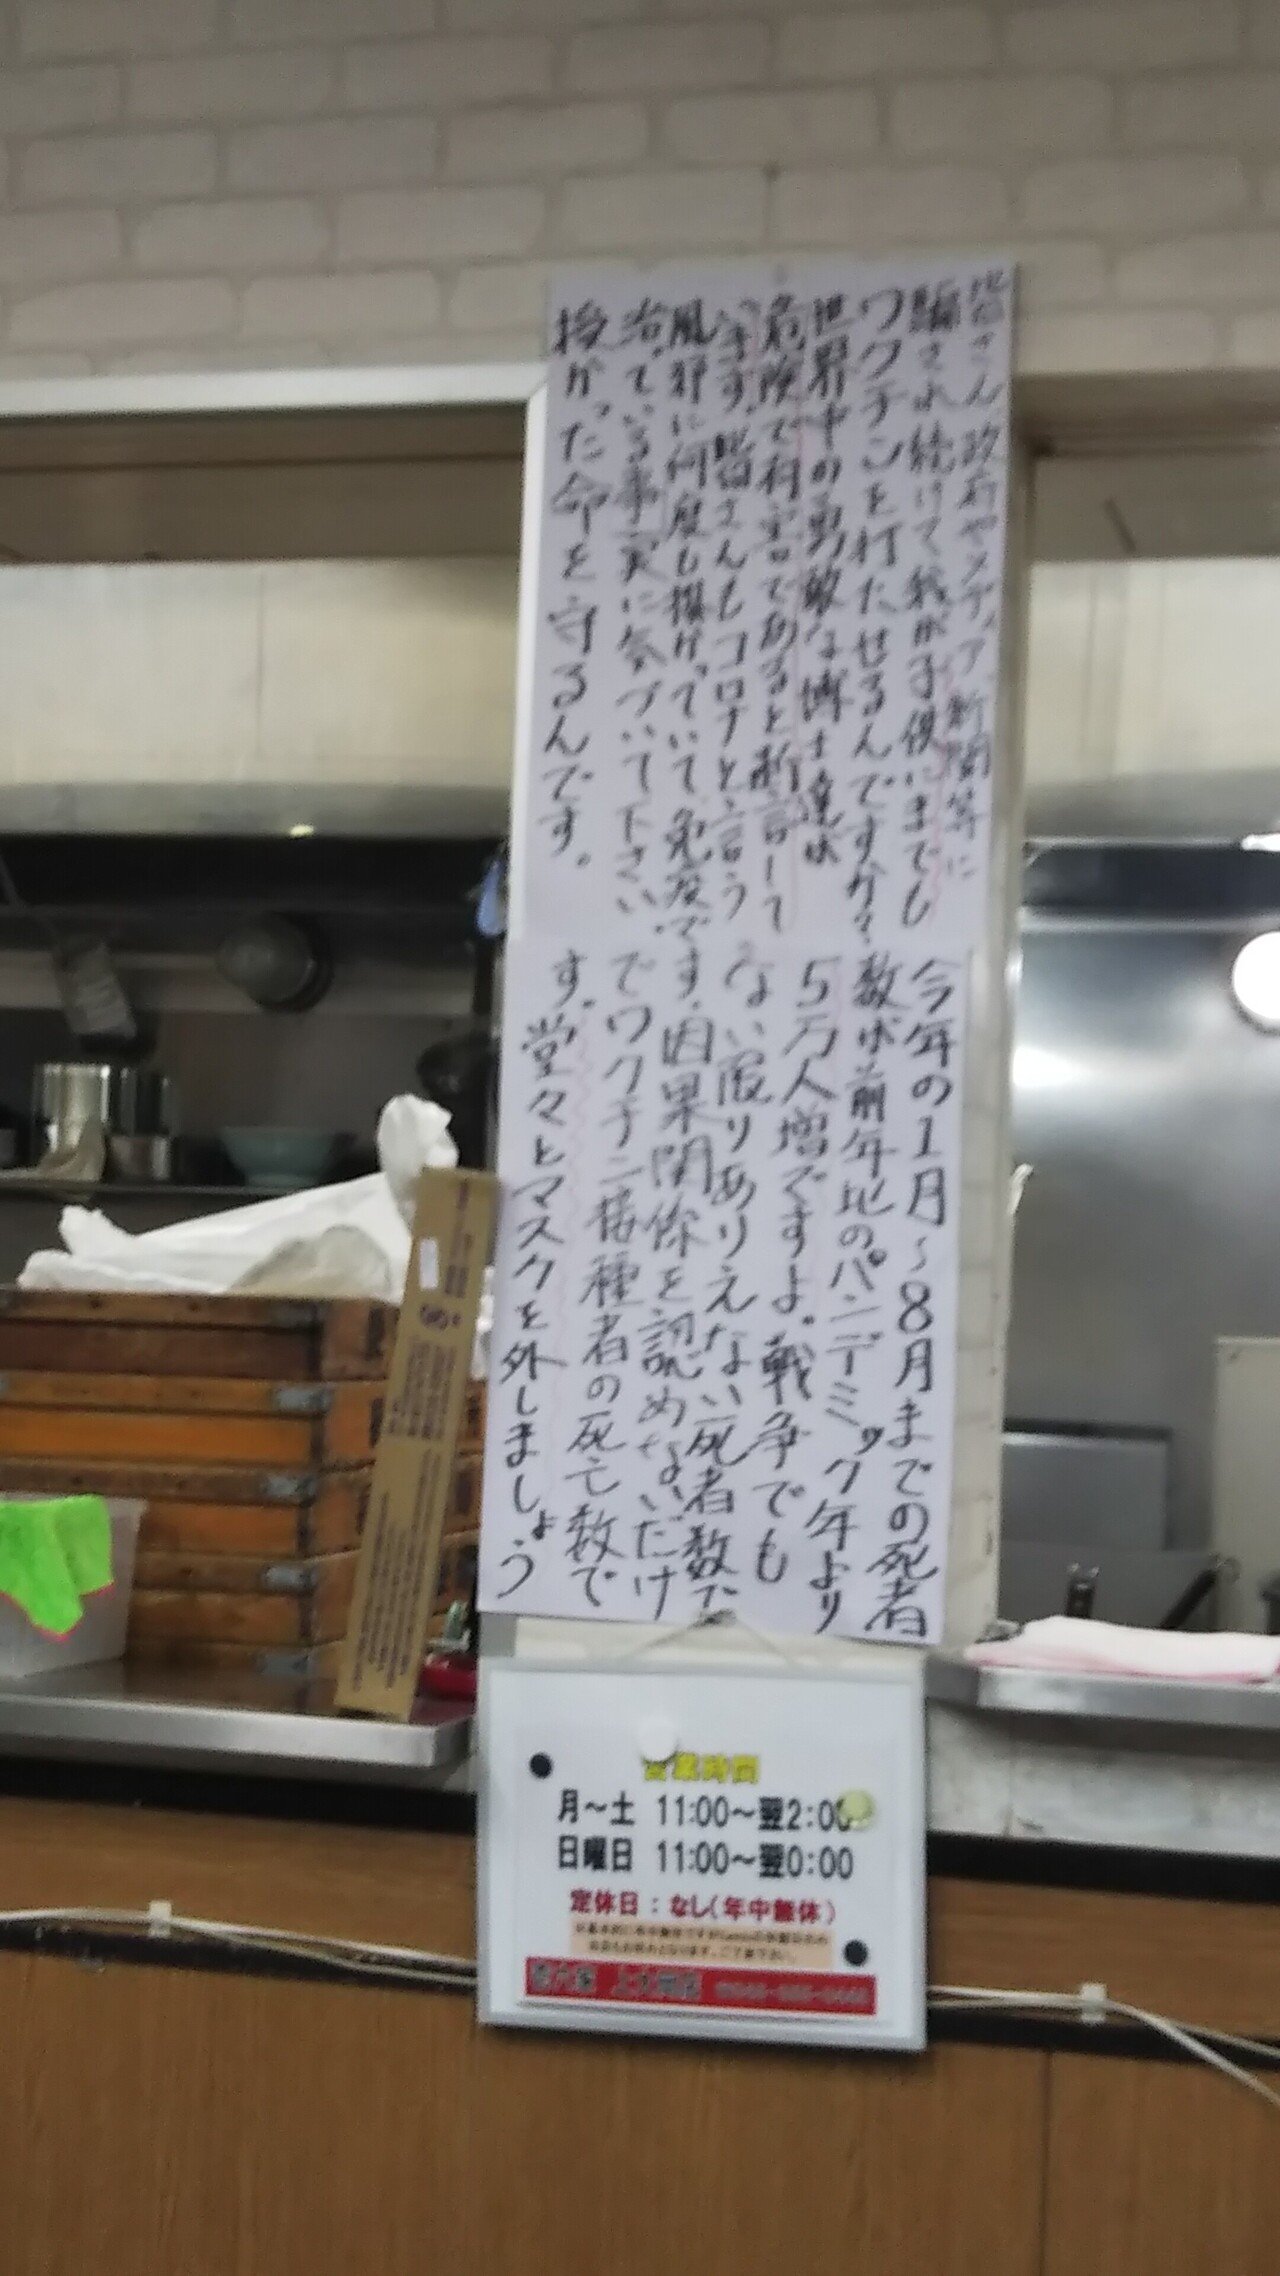 皆さん政府やメディア新聞等に
騙され続けて我が子供にまでも
ワクチンを打たせるんですか?
世界中の勇敢な博士達が
危険で有害であると断言して
います。皆さんもコロナと言う
風邪に何度も掛かっていて、免疫で
治っている事実に気づいて下さい。
授かった命を守るんです。
今年の1月~8月までの死者
数が前年比のパンデミック年より
5万人増ですよ。戦争でも
ない限りありえない死者数で
す。因果関係を認めないだけ
でワクチン接種者の死亡数で
す。堂々とマスクを外しましょう
営業時間
月~土 11:00~翌2:00
日曜日 11:00~翌0:00
定休日:なし(年中無休)